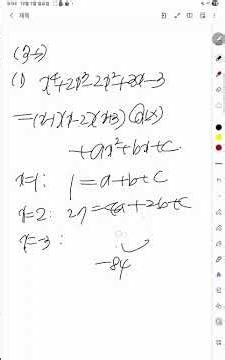 제목
(2-5)
(1) x⁴+2x³-2x²+3x-3
=(x-1)(x-2)(x+3)Q(x)
+ax²+bx+c
x=1: 1=a+b+c
x=2: 27=4a+2b+c
x=-3:
-84